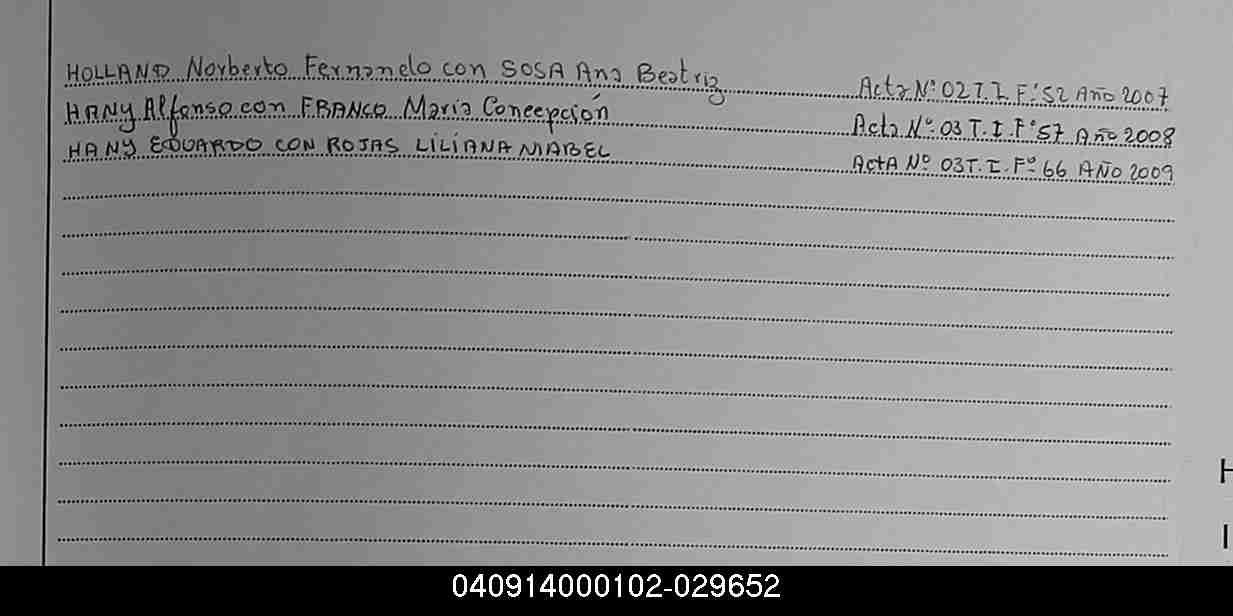 HOLLAND Norberto Fernando con SOSA Ana Beatriz Acta Nº 02 T. I Fº 52 Año 2007
HANY Alfonso con FRANCO María Concepción Acta Nº 03 T. I. Fº 57 Año 2008
HANY EDUARDO CON ROJAS LILIANA MABEL ActA Nº 03 T. I. Fº 66 AÑO 2009
H
I
040914000102-029652